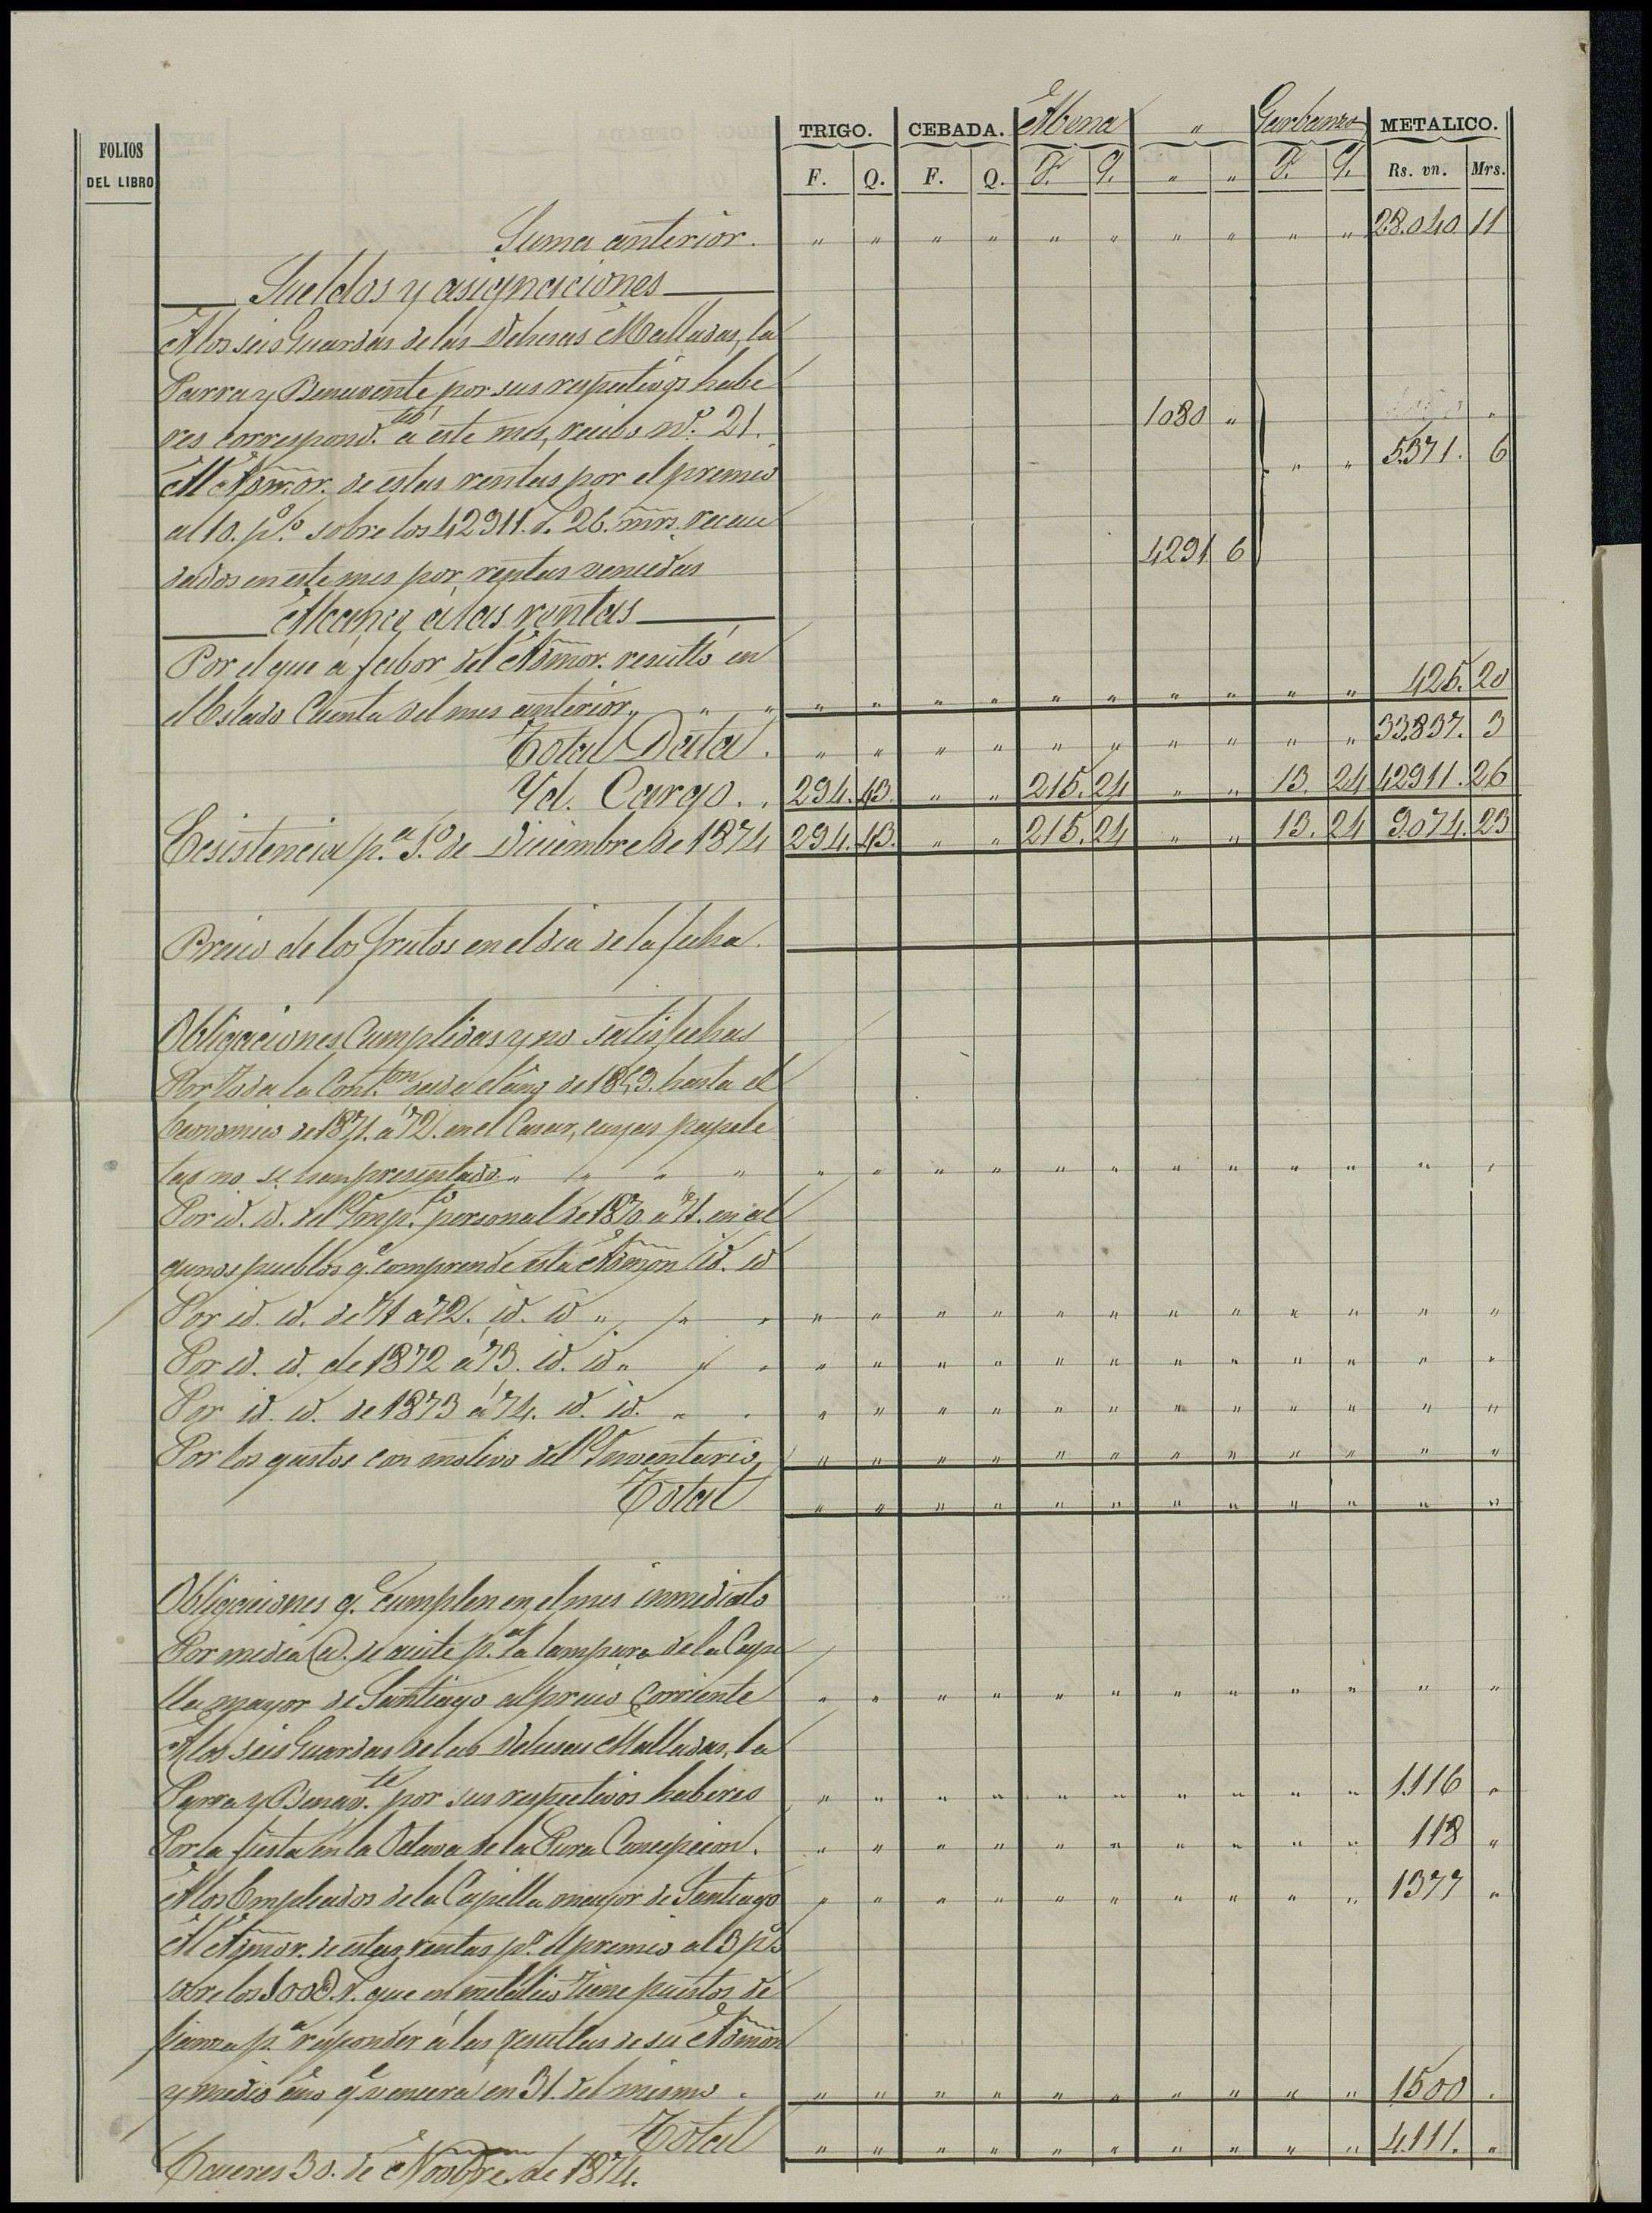 FOLIOS DEL LIBRO
TRIGO. CEBADA. Abena " Garbanzo METALICO.
F. Q. F. Q. F. Q. " " F. Q. Rs. vn. Mrs.
Suma anterior. " " " " " " " " " " 28.040 11
Sueldos y asignaciones
A los seis Guardas de las Dehesas Malladas, la
Parra y Benavente por sus respectivos habe
res correspond.tes a este mes, recibo nº. 21. 1080 "
" " 5.371. 6
Al Admor. de estas rentas por el premio
al 10. p.% sobre los 42911. r. 26. mrs. recau
dados en este mes por rentas vencidas 4291 6
Alcance á las rentas
Por el que á fabor del Admor. resultó en
el Estado Cuenta del mes anterior " " " " " " " " " " " " 425. 20
Total Data. " " " " " " " " " " 33.837. 3
Yd. Cargo. . 294. 43. " " 215. 24 " " 13. 24 42911. 26
Ecsistencia p.a 1.º de Diciembre de 1874 294. 43. " " 215. 24 " " 13. 24 9.074. 23
Precio de los frutos en el dia de la fecha.
Obligaciones Cumplidas y no satisfechas
Por toda la Cont.on desde el año de 1869. hasta el
Economico de 1871. á 72. en el Casar, cuyas papele
tas no se han presentado " " " " " " " " " " " " " " "
Por id. id. del Ymp.to personal de 1870 a 71. en al
gunos pueblos q.e comprende esta Admon id. id
Por id. id. de 71 a 72. id. id " " " " " " " " " " " " " " "
Por id. id. de 1872 á 73. id. id " " " " " " " " " " " " " " "
Por id. id. de 1873 á 74. id. id. " " " " " " " " " " " " " "
Por los gastos con motivo del Ynventario " " " " " " " " " " " "
Total " " " " " " " " " " " "
Obligaciones q.e cumplen en el mes inmediato
Por media @. de aceite p.a la lampara de la Cape
lla mayor de Santiago al precio Corriente " " " " " " " " " " " "
A los seis Guardas de las Dehesas Malladas, la
Parra y Benav.te por sus respectivos haberes " " " " " " " " " " 1116 "
Por la fiesta en la Octava de la Pura Concepcion. " " " " " " " " " " 118 "
A los Empleados de la Capilla mayor de Santiago " " " " " " " " " " 1377 "
Al Admor. de estas rentas p.r el premio al 3 p.%
sobre los que en metalico tiene puestos de
fianza p.a responder á las resultas de su Admon
y medio año q.e vencerá en 31. del mismo. " " " " " " " " " " 1500 "
Total " " " " " " " " " " 4.111. "
Caceres 30. de Novbre. de 1874.